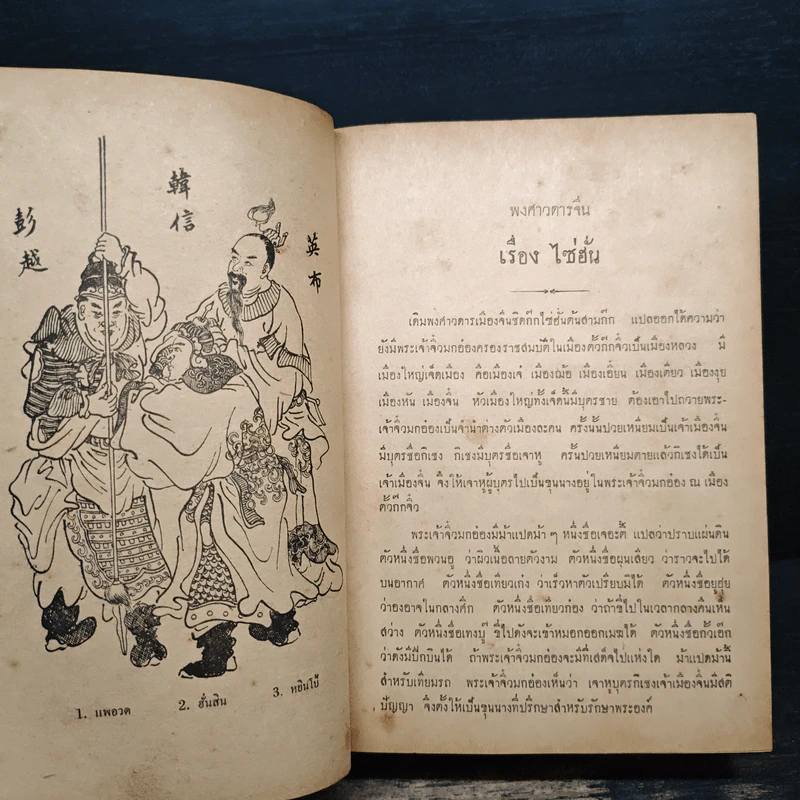 彭越
韓信
英布
1. แพอวด
2. ฮั่นสิน
3. หยินโป้
พงศาวดารจีน
เรื่อง ไซ่ฮั่น
เดิมพงศาวดารเมืองจีนชิดก๊กไซ่ฮั่นต้นสามก๊ก แปลออกได้ความว่า
ยังมีพระเจ้าจิ๋วมกอ๋องครองราชสมบัติในเมืองตั้วก๊กจิ๋วเป็นเมืองหลวง มี
เมืองใหญ่เจ็ดเมือง คือเมืองเจ๋ เมืองฌ้อ เมืองเอี้ยน เมืองเตียว เมืองงุย
เมืองหัน เมืองจิ๋น หัวเมืองใหญ่ทั้งเจ็ดนี้มีบุตรชาย ต้องเอาไปถวายพระ-
เจ้าจิ๋วมกอ๋องเป็นจำนำต่างตัวเมืองละคน ครั้งนั้นปวยเหนียมเป็นเจ้าเมืองจิ๋น
มีบุตรชื่อกิเซง กิเซงมีบุตรชื่อเจาหู ครั้นปวยเหนียมตายแล้วกิเซงได้เป็น
เจ้าเมืองจิ๋น จึงให้เจาหูผู้บุตรไปเป็นขุนนางอยู่ในพระเจ้าจิ๋วมกอ๋อง ณ เมือง
ตั้วก๊กจิ๋ว
พระเจ้าจิ๋วมกอ๋องมีม้าแปดม้า ๆ หนึ่งชื่อเจอะตี้ แปลว่าปราบแผ่นดิน
ตัวหนึ่งชื่อพวนอู ว่าผิวเนื้อลายตัวงาม ตัวหนึ่งชื่อผุนเสียว ว่าราวจะไปได้
บนอากาศ ตัวหนึ่งชื่อเทียวเก่ง ว่าเร็วหาตัวเปรียบมิได้ ตัวหนึ่งชื่อยูฮุย
ว่าองอาจในกลางศึก ตัวหนึ่งชื่อเทียวก่อง ว่าถ้าขี่ไปในเวลากลางคืนเห็น
สว่าง ตัวหนึ่งชื่อเทงบู๊ ขี่ไปดังจะเข้าหมอกออกเมฆได้ ตัวหนึ่งชื่อกั๊วเอ๊ก
ว่าดังมีปีกบินได้ ถ้าพระเจ้าจิ๋วมกอ๋องจะมีที่เสด็จไปแห่งใด ม้าแปดม้านี้
สำหรับเทียมรถ พระเจ้าจิ๋วมกอ๋องเห็นว่า เจาหูบุตรกิเซงเจ้าเมืองจิ๋นมีสติ
ปัญญา จึงตั้งให้เป็นขุนนางที่ปรึกษาสำหรับรักษาพระองค์